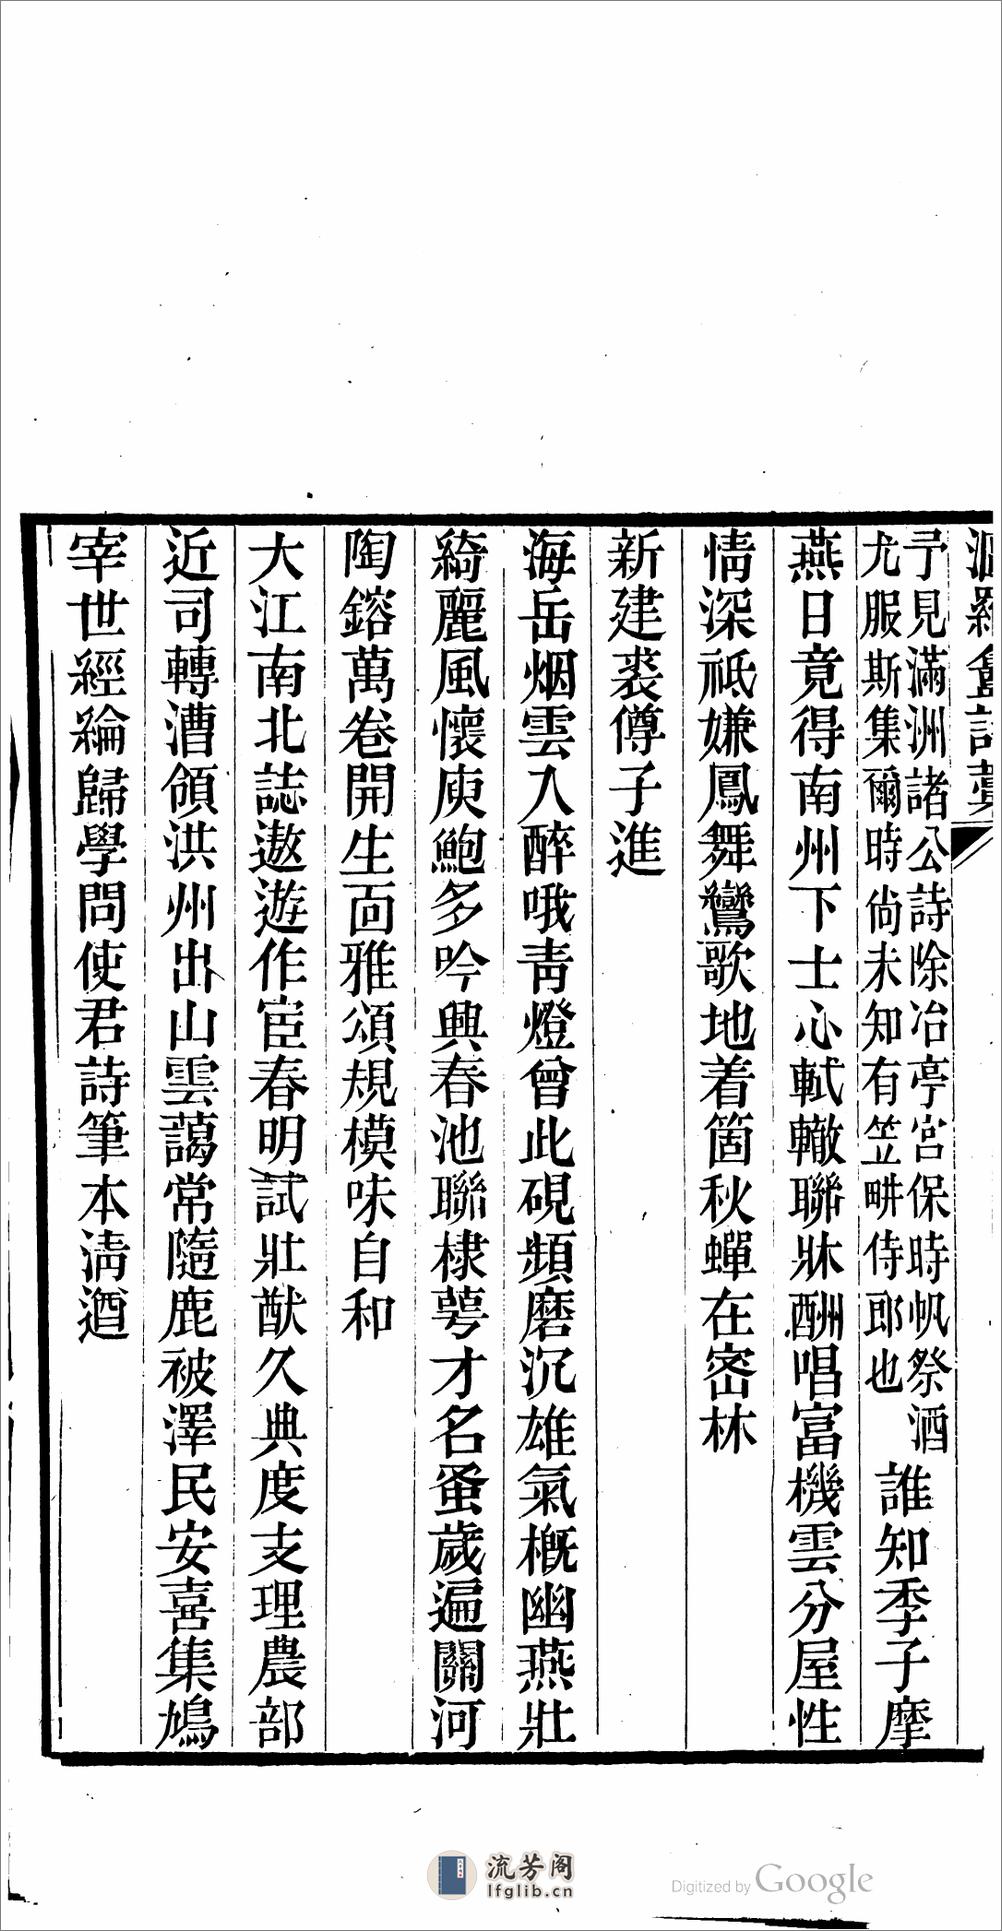 予見滿洲諸公詩除冶亭宮保時帆祭酒
尤服斯集爾時尙未知有笠畊侍郎也
誰知季子摩
燕日竟得南州下士心軾轍聯牀酬唱富機雲分屋性
情深祗嫌鳳舞鸞歌地着箇秋蟬在密林
新建裘僔子進
海岳烟雲入醉哦靑燈曾此硯頻磨沉雄氣槪幽燕壯
綺麗風懷庾鮑多吟興春池聯棣萼才名蚤歲遍關河
陶鎔萬卷開生面雅頌規模味自和
大江南北誌遨遊作宦春明試壯猷久典度支理農部
近司轉漕領洪州出山雲藹常隨鹿被澤民安喜集鳩
宰世經綸歸學問使君詩筆本淸遒
流芳阁
lfglib.cn
Digitized by Google